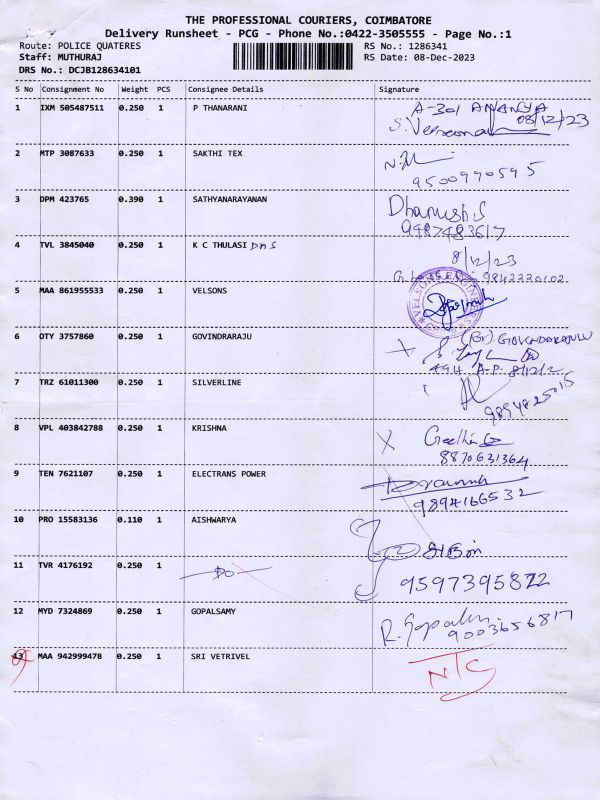 THE PROFESSIONAL COURIERS, COIMBATORE
Delivery Runsheet - PCG - Phone No.:0422-3505555 - Page No.:1
Route: POLICE QUATERES RS No.: 1286341
Staff: MUTHURAJ RS Date: 08-Dec-2023
DRS No.: DCJB128634101
S No Consignment No Weight PCS Consignee Details Signature
1 IXM 505487511 0.250 1 P THANARANI A-301 ANANYA
08/12/23
2 MTP 3087633 0.250 1 SAKTHI TEX
9500990595
3 DPM 423765 0.390 1 SATHYANARAYANAN Dhanush S
9487483617
4 TVL 3845040 0.250 1 K C THULASI DMS 8/12/23
9842220102
5 MAA 861955533 0.250 1 VELSONS
6 OTY 3757860 0.250 1 GOVINDRARAJU
494 A.P. 8/12/2
7 TRZ 61011300 0.250 1 SILVERLINE
9894825015
8 VPL 403842788 0.250 1 KRISHNA Geetha
8870631364
9 TEN 7621107 0.250 1 ELECTRANS POWER
9894166532
10 PRO 15583136 0.110 1 AISHWARYA
11 TVR 4176192 0.250 1 -DO- 9597395822
12 MYD 7324869 0.250 1 GOPALSAMY R. Gopalsamy
9003656817
13 MAA 942999478 0.250 1 SRI VETRIVEL NTC